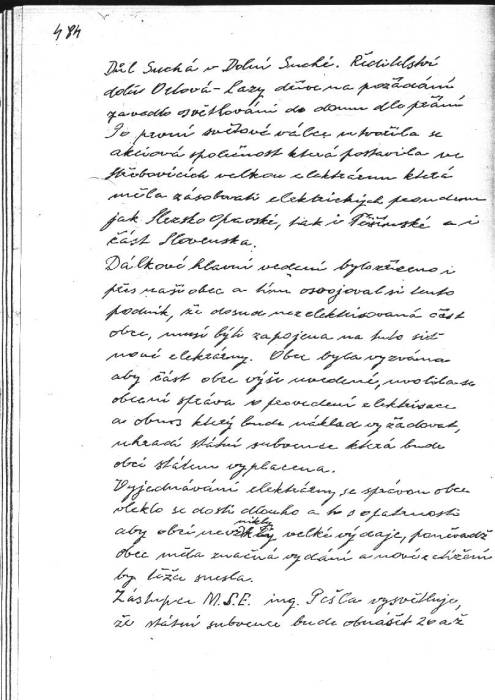 484
Důl Suchá v Dolní Suché. Ředitelství
dolu Orlová-Lazy dříve na požádání
zavedlo osvětlování do domu dle přání
Po první světové válce utvořila se
akciová společnost která postavila ve
Třebovicích velkou elektrárnu která
měla zásobovati elektrickým proudem
jak Slezsko Opavské, tak i Těšínské a i
část Slovenska.
Dálkové hlavní vedení bylo zřízeno i
přes naši obec a tím osvojoval si tento
podnik, že dosud nezelektrisovaná část
obce, musí býti zapojena na tuto síť
nové elektrárny. Obec byla vyzvána
aby část obce výše uvedené, uvolila se
obecní správa k provedení elektrisace
a obnos který bude náklad vyžadovat,
uhradí státní subvence která bude
obci státem vyplacena.
Vyjednávání elektrárny se správou obce
vleklo se dosti dlouho a to s opatrností
aby obci nevznikly velké výdaje, poněvadž
obec měla značná vydání a nové zatížení
by těžce snesla.
Zástupce M.S.E. ing. Pešla vysvětluje,
že státní subvence bude obnášet 20 až